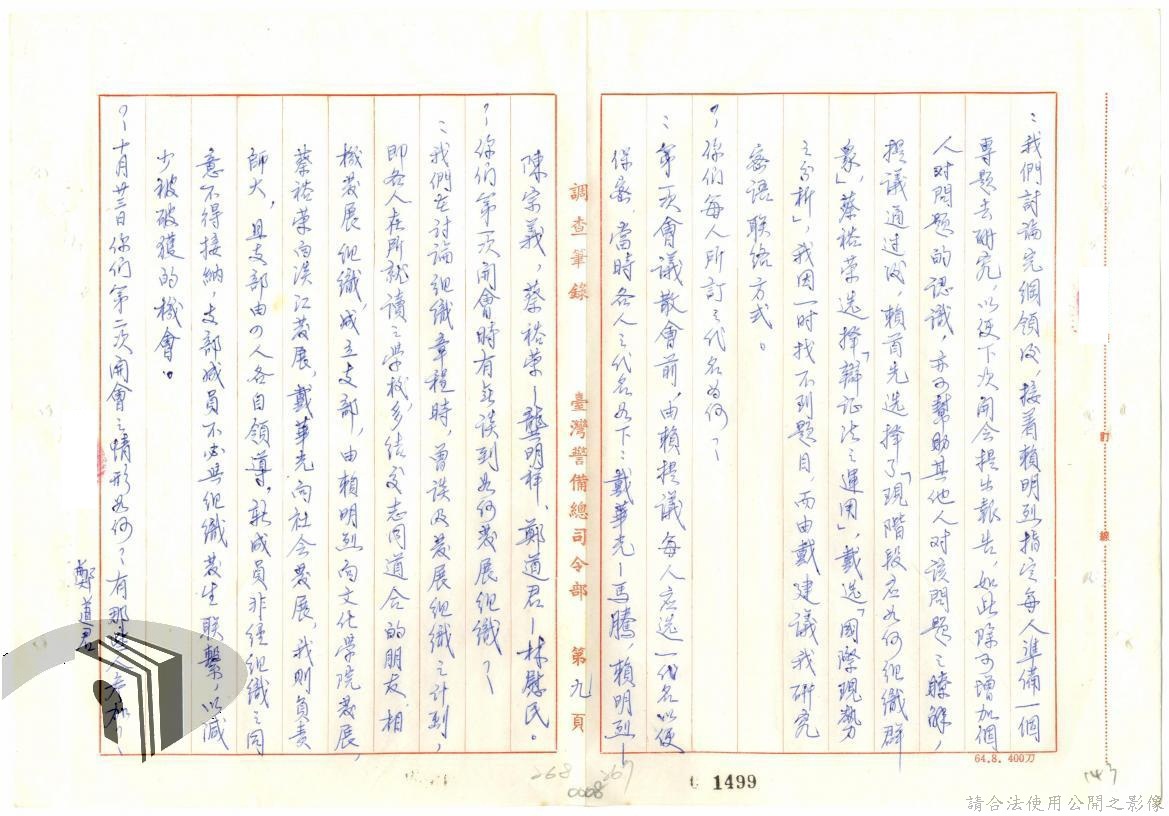 :我們討論完綱領後，接着賴明烈指定每人準備一個
專題去研究，以便下次開會提出報告，如此除可增加個
人对問題的認識，亦可幫助其他人对該問題之瞭解，
提議通过後，賴首先选擇了「現階段应如何組織群
衆」，蔡裕荣选擇「辯证法之運用」，戴选「國際現勢
之分析」，我因一时找不到題目，而由戴建議我研究
密语联络方式。
?:你们每人所訂之代名為何?
:第一次會議散會前，由賴提議每人应选一代名以便
保密，當時各人之代名如下:戴華光—馬騰，賴明烈—
64.8. 400刀
訂
線
147
調查筆錄 臺灣警備總司令部 第九頁
陳宗義，蔡裕荣—龔明祥，鄭道君—林慰民。
?:你们第一次開會時有無谈到如何发展组織?
:我們在討論组織章程時，曾谈及发展組織之计划，
即各人在所就讀之学校多结交志同道合的朋友，相
機发展組織，成立支部，由賴明烈向文化學院发展，
蔡裕荣向淡江发展，戴華光向社会发展，我則負责
師大，且支部由四人各自領導，新成員非经組織之同
意不得接納，支部成員不必與组織发生联繫，以減
少被破獲的機會。
?:十月廿三日你们第二次開會之情形如何?有那些人参加?
鄭道君
268
267
0008
1499
請合法使用公開之影像